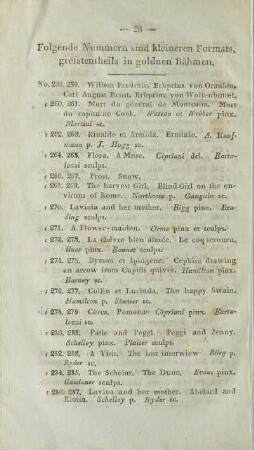 — 28 —
Folgende Nummern sind kleineren Formats,
größtentheils in goldnen Rähmen.
No. 258. 259. Willem Frederic Erbprins von Oranien,
Carl August Ernst. Erbprinz von Wolfenbüttel.
260. 261. Mort du général de Montcalm. Mort
du capitaine Cook. Watson et Webber pinx.
Martini sc.
262. 263. Rinaldo et Armida. Erminie. A. Kauf-
mann p. J. Hogg sc.
264. 265. Flora. A Muse. Cipriani del. Barto-
lozzi sc.
266. 267. Frost. Snaw.
268. 269. The harvest Girl. Blind Girl on the en-
virons of Rome. Northcote p. Gaugain sc.
270. Lavinia and her mother. Bigg pinx. Bea-
ding sculps.
271. A Flower-maiden. Orme pinx et sculps.
272. 273. La chèvre bien aimée. Le coqcrouru.
Huet pinx. Bonnet sculps.
274. 275. Bymon et Iphigene. Cephisa drawing
an arrow from Cupids quiver. Hamilton pinx.
Barney sc.
276. 277. Collin et Lucinda. The happy Swain.
Hamilton p. Stanier sc.
278. 279. Ceres. Pomona. Cipriani pinx. Barto-
lozzi sc.
280. 281. Patie and Peggi. Peggi and Jenny.
Schelley pinx. Plaiter sculps.
282. 283. A Visit. The last interwiew Riley p.
Ryder sc.
284. 285. The Scholar. The Dunc. Evans pinx.
Gaudaner sculps.
286. 287. Lavina and her mother. Abelard and
Eloisa. Schelley p. Ryder sc.